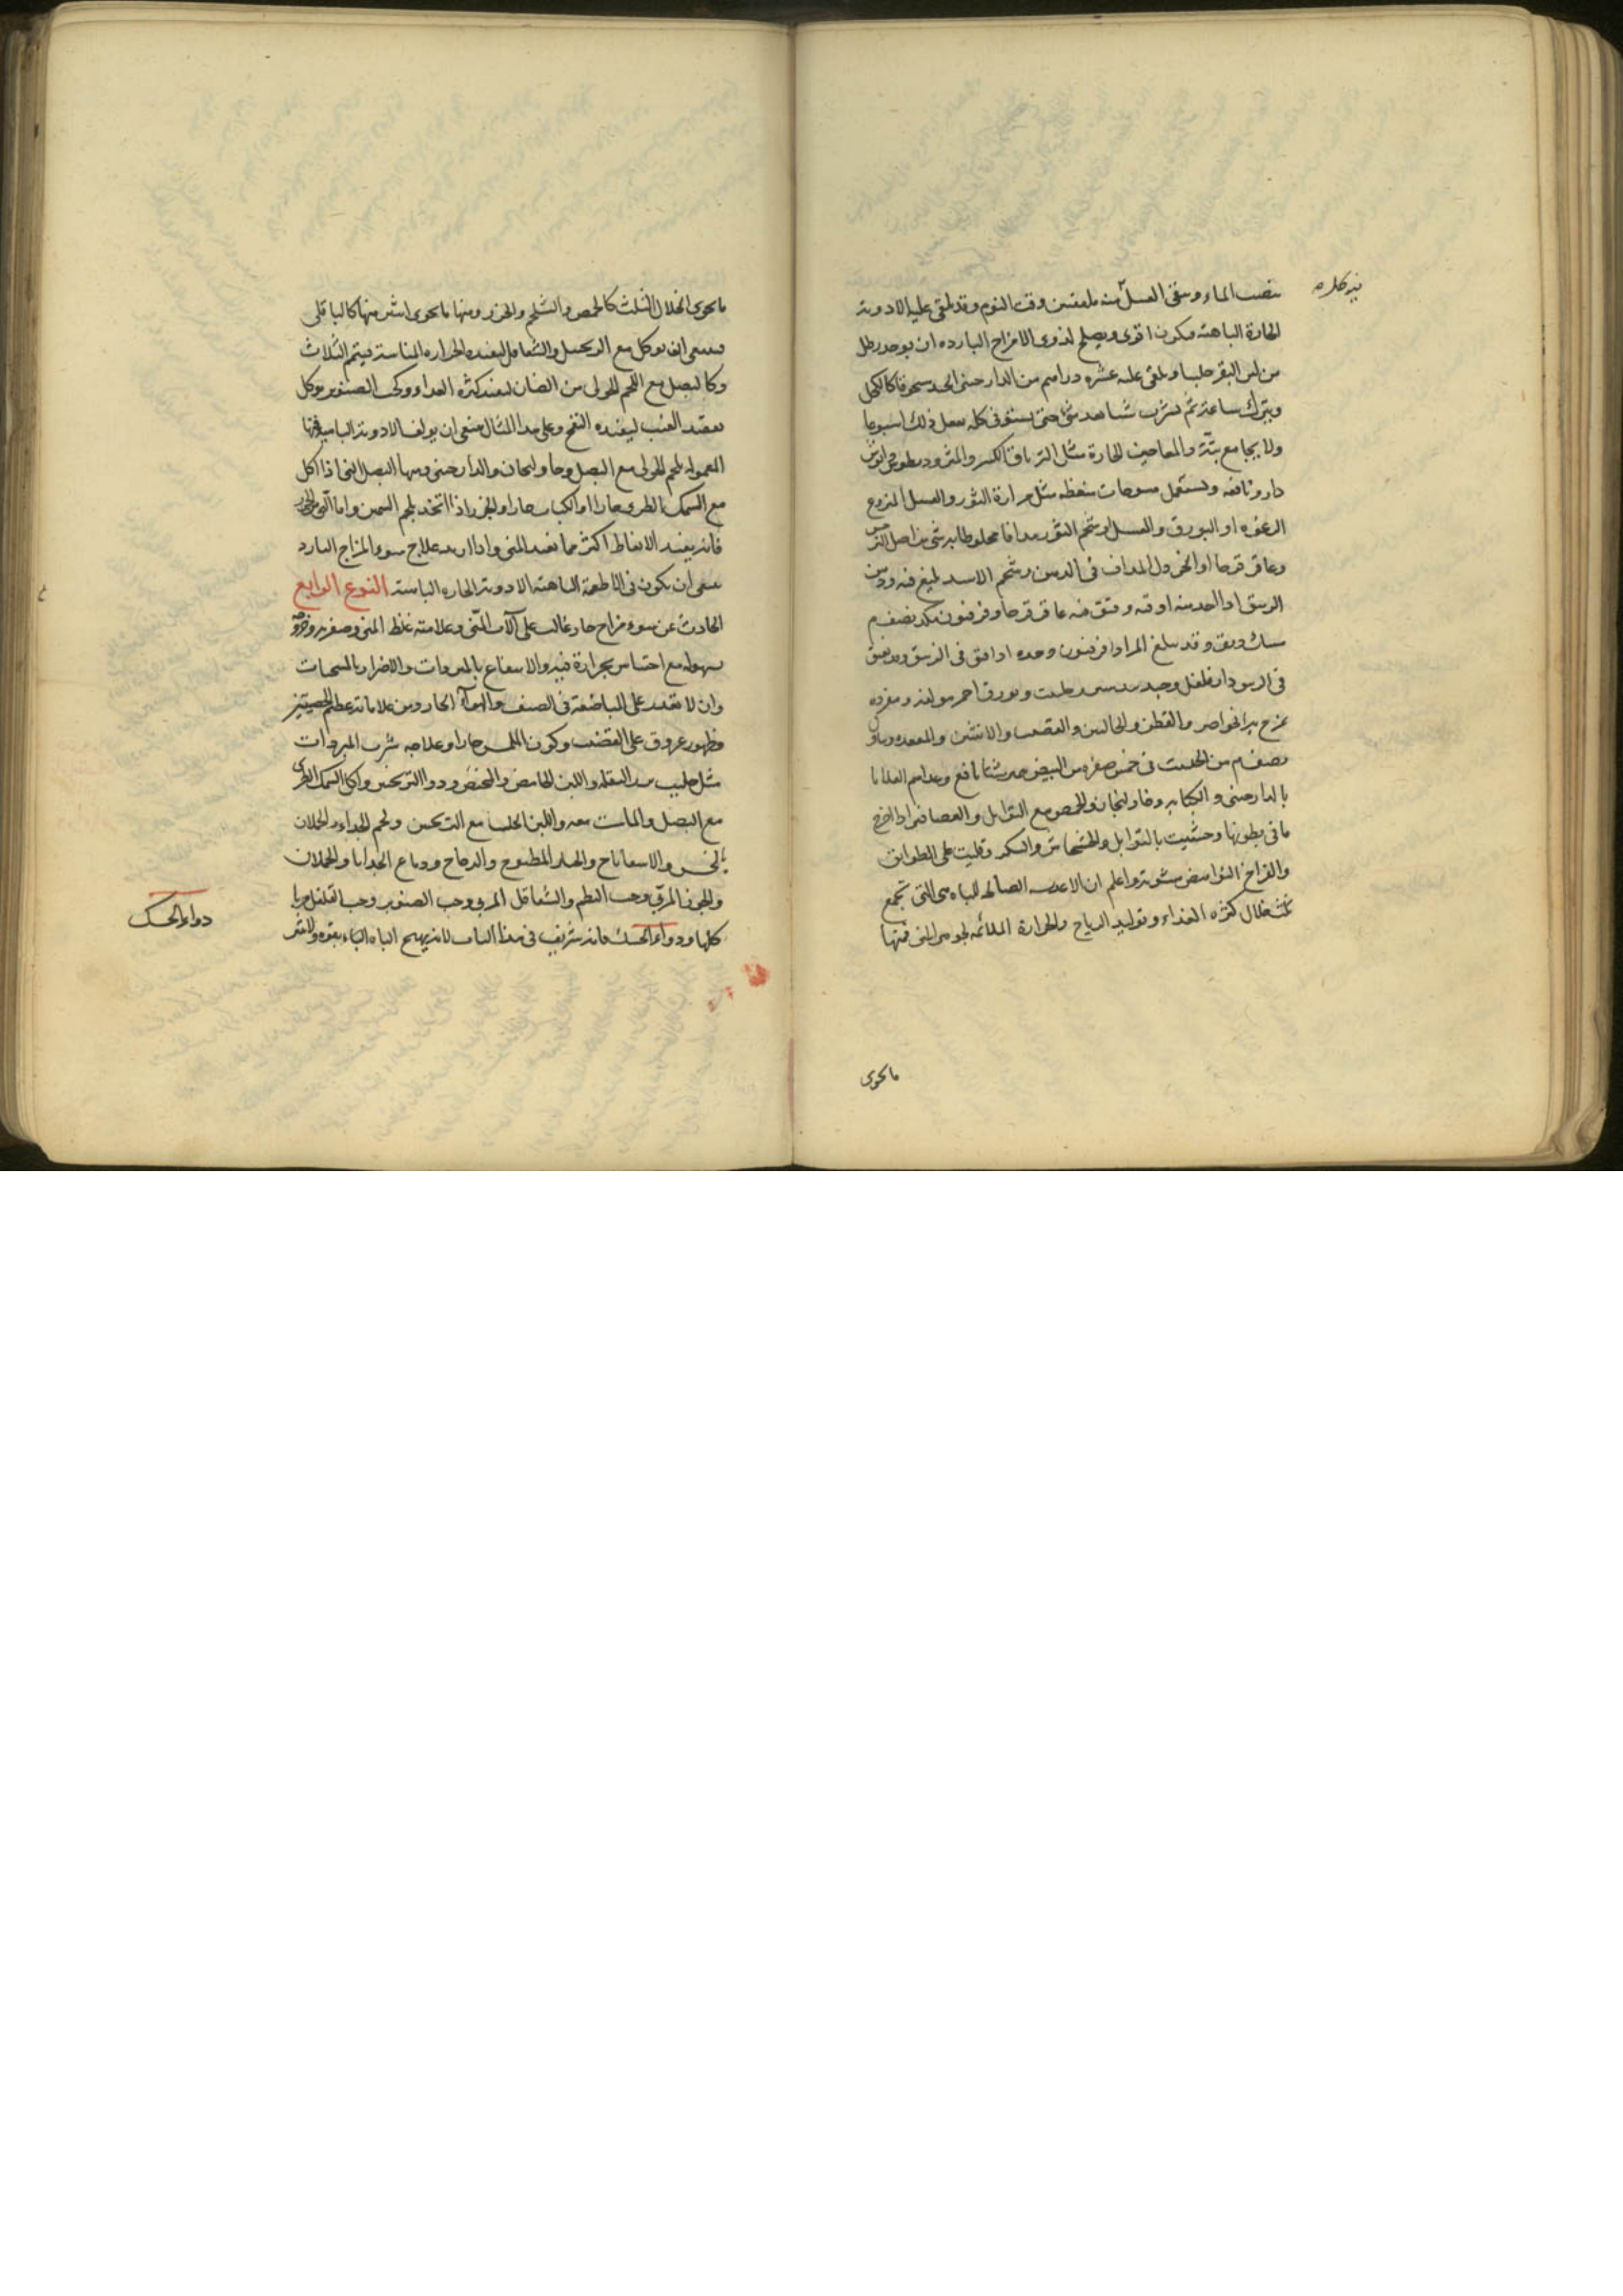 ينصب الماء ويبقى العسل منه ملعقتين وقت النوم وقد يلقى عليه الادوية
الحارة الباهية فيكون اقوى ويصلح لذوى الامزاج الباردة ان يوخذ رطل
من لبن البقر حليبا ويلقى عليه عشرة دراهم من الدارصينى الجيد مسحوقا كالكحل
ويترك ساعة ثم يشرب شيئا بعد شئ حتى يستوفى كله يفعل ذلك اسبوعا
ولا يجامع بتة والمعاجين الحارة مثل الترياق الكبير والمثروديطوس
دار ونافعه ويستعمل مسوحات منعظه مثل مرارة الثور والعسل المنزوع
الرغوه او البورق والعسل او شحم الثور مدافا مخلوطا به شئ من اصل النرجس
وعاقرقرحا او الخردل المداف فى الدهن وشحم الاسد بليغ فيه ودهن
الزنبق اذا اخذ منه اوقيه وفتق فيه عاقرقرحا وفرفيون نصف
مسك دبق وقد يبلغ المراد افرفيون وحده اذا فتق فى الزنبق
فى الزيت دارفلفل وجندبيدستر وحلتيت وبورق احمر مولفه ومفرده
يمرخ به الخواصر والقطن والحالبين والقضيب والانثيين والمقعده
نصف م من الحلتيت فى خمس صفره من البيض نافع
بالدارصينى والكبابه وخاولنجان والحمص مع التوابل والعصافير اذا اخرج
ما فى بطونها وحشيت بالتوابل والخشخاش والسكر وقليت على الطوابق
والفراخ النواهض مشوية واعلم ان الاغذيه الصالحه للباه هى التى تجمع
ثلث خلال كثره الغذاء وتوليد الرياح والحرارة الملائمه لجوهر المنى فمنها
ما يحوى
ما يحوى الخلال الثلث كالحمص والشلجم والجزر ومنها ما يحوى اثنين منها كالباقلى
فينبغى ان يوكل مع الزنجبيل والشقاقل ليفيده الحراره المناسبة فيتم الثلاث
وكالبصل مع اللحم الحولى من الضان ليفيد كثره الغذاء وكحب الصنوبر يوكل
بعقيد العنب ليفيده النفخ وعلى هذا المثال ينبغى ان يولف الادوية الباهية
المعموله بلحم الحولى مع البصل وخاولنجان والدارصينى ومنها البصل النى اذا اكل
مع السمك الطرى حارا او الكباب حارا والجزر اذا اتخذ بلحم السمين واما
فانه يفيد الانعاظ اكثر مما يفيد المنى واذا اريد علاج سوء المزاج البارد
ينبغى ان يكون فى الاطعمة الباهية الادوية الحاره اليابسة النوع الرابع
الحادث عن سوء مزاج حار غالب على آلات المنى وعلامته غلظ المنى وصفرته وخروجه
بسهوله مع احساس بحرارة فيه والانتفاع بالمبردات والاضرار بالمسخنات
وان لا يقدر على المباضعة فى الصيف والهواء الحار ومن علاماته عظم الخصيتين
وظهور عروق على القضيب وكون الملمس حارا وعلاجه شرب المبردات
مثل حليب بزر البقله واللبن الحامض والمخيض ودوا الترنجبين واكل السمك الطرى
مع البصل والماست معه واللبن الحليب مع الترنجبين ولحم الجداء والحملان
بالخس والاسفاناخ والخيار المطبوخ والدجاج ودماغ الجدايا والحملان
والجوز المربى وحب البطم والشقاقل المربى وحب الصنوبر وحب الفلفل
كلها ودواء الحسك فانه شريف فى هذا الباب لانه يهيج الباه بقوه
دواء الحسك